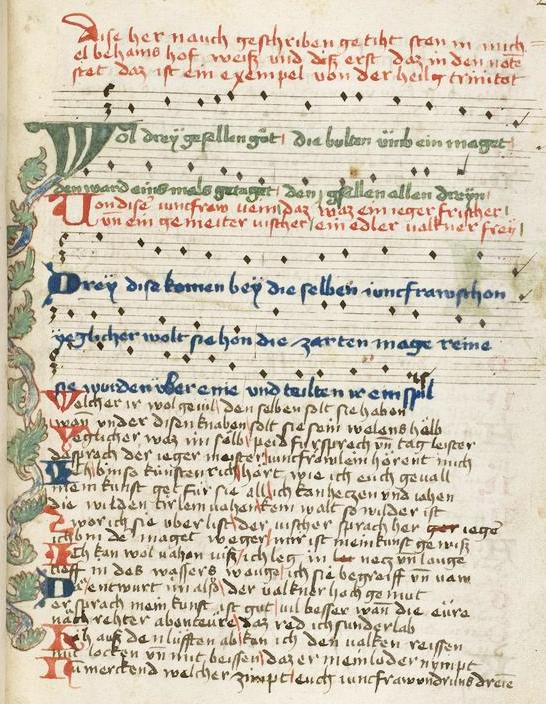 Dise her nauch geschriben getiht sten in mich=
el behams hof weiß und diß erst daz in den note
stet daz ist ein exempel von der heilg trinitot
Wol dreÿ gesellen gůt die bulten umb ein maget
den ward eins mals getaget den gsellen allen dreÿn
Von diser iuncfraw uein daz waz ein ieger frischer
un ein gemeiter uischer ein edler ualkner freÿ
Dreÿ dise komen beÿ die selben iuncfraw schon
ÿeglicher wolt sie hon die zarten mage reine
sie wurden uber eine und teilten ir ein spil
Welcher ir wol geuil den selben solt sie haben
won under disen knaben solt sie sein welens halb
Yeglicher waz im selb peid fursprech un tag leister
do sprach der ieger meister iuncfrawlein hörent mich
Ich bins kunsten rich hört wie ich euch geuall
mein kunst get für sie all ich kan heczen und iahen
die wilden tirlein uahen kein walt so wilder ist
wor ich sie uber list der uischer sprach her ieger
ich bin der maget weger mir ist mein kunst gewiß
Ich kan wol uahen uiß ich leg in necz un lauge
tieff in des wassers wauge ich sie begreiff un uaw
Da entwurt im also der ualkner hoch gemut
er sprach mein kunst ist gut uil besser wan die eüre
nach rehter abenteure daz red ich sunder lab
Ich auß den lüfften ab kan ich den ualken reissen
mit locken un mit beissen daz er mein loder nympt
Nu merckend welcher zimpt euch iuncfraw undr uns dreie